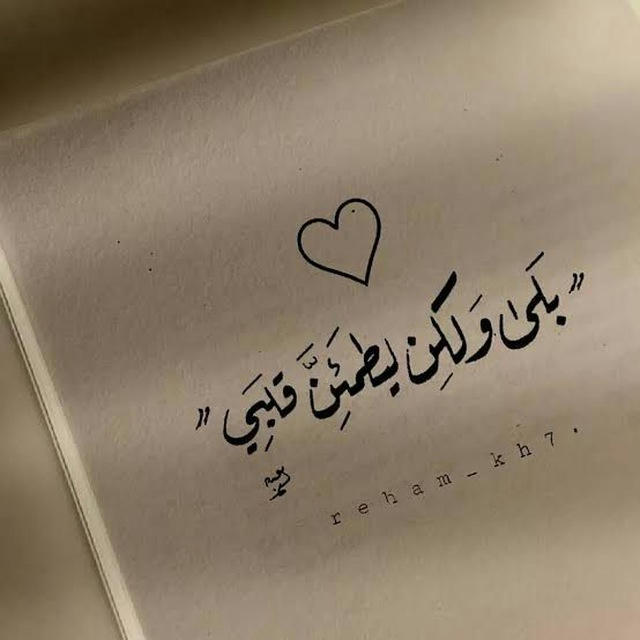 " بَلَىٰ وَلَكِن لِيَطْمَئِنَّ قَلْبِي "
reham_kh7.